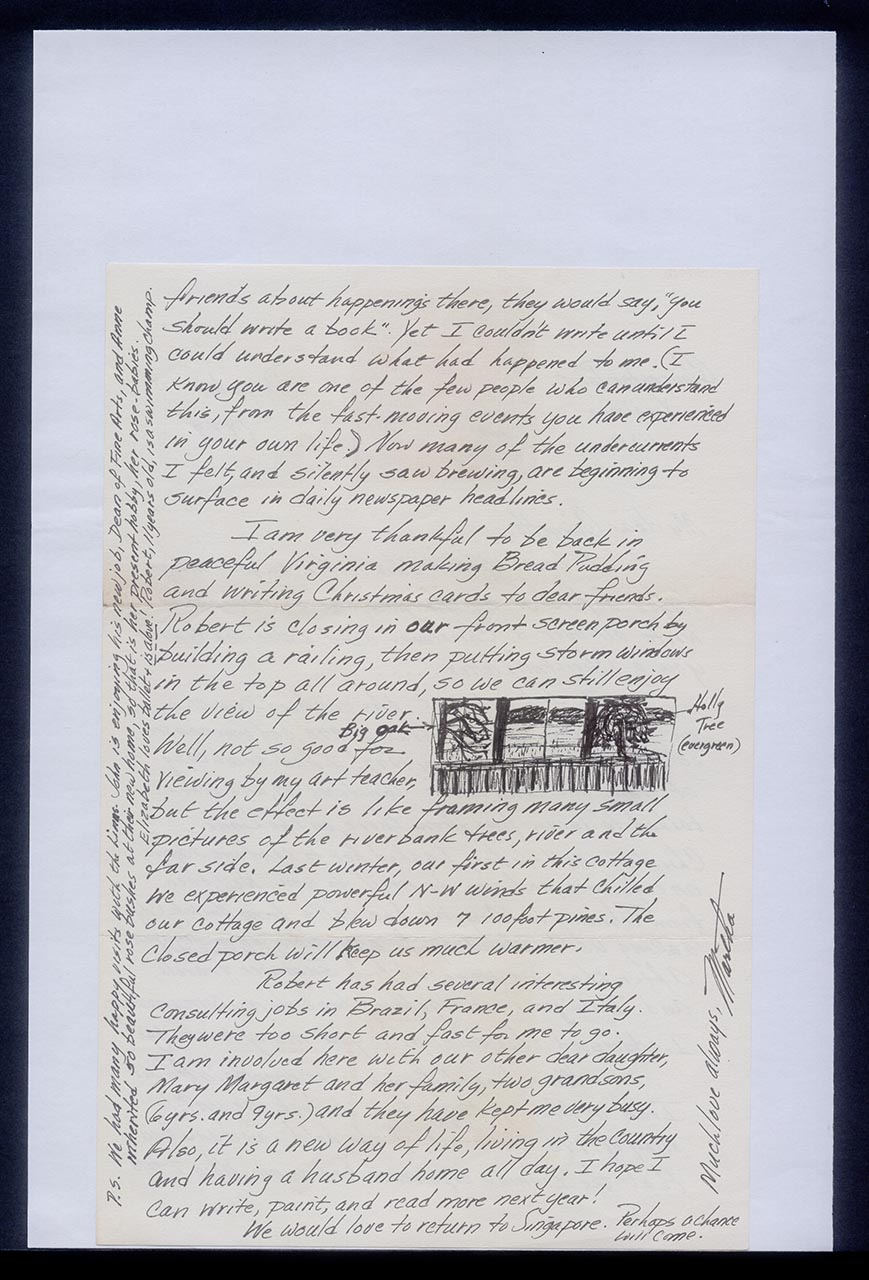 friends about happenings there, they would say, "You
should write a book". Yet I couldn't write until I
could understand what had happened to me. (I
know you are one of the few people who can understand
this, from the fast-moving events you have experienced
in your own life.) Now many of the undercurrents
I felt, and silently saw brewing, are beginning to
surface in daily newspaper headlines.
I am very thankful to be back in
peaceful Virginia making Bread Pudding
and writing Christmas cards to dear friends.
Robert is closing in our front screen porch by
building a railing, then putting storm windows
in the top all around, so we can still enjoy
the view of the river.
Big oak
Holly
Tree
(evergreen)
Well, not so good for
viewing by my art teacher,
but the effect is like framing many small
pictures of the river bank trees, river and the
far side. Last winter, our first in this cottage
we experienced powerful N-W winds that chilled
our cottage and blew down 7 100foot pines. The
closed porch will keep us much warmer.
Robert has had several interesting
consulting jobs in Brazil, France, and Italy.
They were too short and fast for me to go.
I am involved here with our other dear daughter,
Mary Margaret and her family, two grandsons,
(6yrs. and 9yrs.) and they have kept me very busy.
Also, it is a new way of life, living in the country
and having a husband home all day. I hope I
can write, paint, and read more next year!
We would love to return to Singapore. Perhaps a chance
will come.
Much love always, Martha
P.S. We had many happy visits with the . John is enjoying his new job, Dean of Fine Arts, and Anne
inherited 50 beautiful rose bushes at their new home, so that is her present hobby, her rose-babies.
Elizabeth loves ballet & is above! Robert, 11 years old, is a swimming champ.